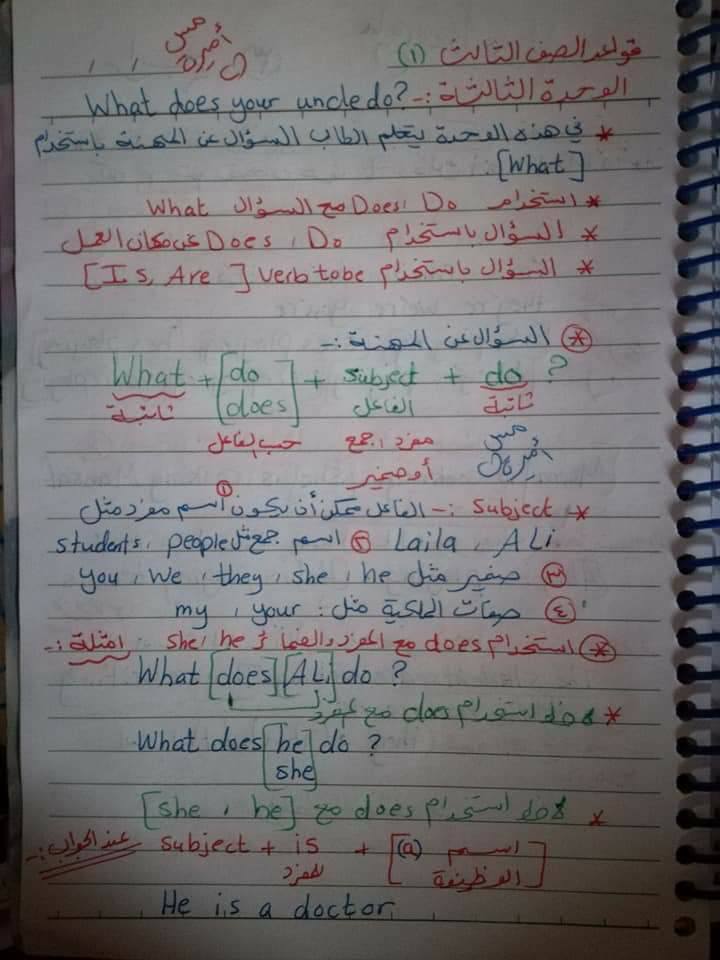 مس
أميرة
قواعد الصف الثالث (١)
الوحدة الثالثة :- What does your uncle do?
* في هذه الوحدة يتعلم الطالب السؤال عن المهنة باستخدام
[What].
* استخدام Do، Does مع السؤال What
* السؤال باستخدام Do، Does عن مكان العمل
* السؤال باستخدام verb to be [Is, Are]
* السؤال عن المهنة :-
What + [do does] + subject + do ?
ثابتة الفاعل ثابتة
حسب الفاعل مفرد، جمع أو ضمير
مس
أميرة
* Subject :- الفاعل ممكن أن يكون ① اسم مفرد مثل
Laila، ALi. ② اسم جمع مثل people، students
③ ضمير مثل he، she، they، we، you
④ صفات الملكية مثل: your، my
* استخدام does مع المفرد والضمائر he، she. امثلة :-
What [does] [ALi] do ?
* لاحظ استخدام does مع المفرد
What does [he she] do ?
* لاحظ استخدام does مع [he، she]
عند الجواب :- subject + is + [(a) اسم الوظيفة]
للمفرد
He is a doctor.